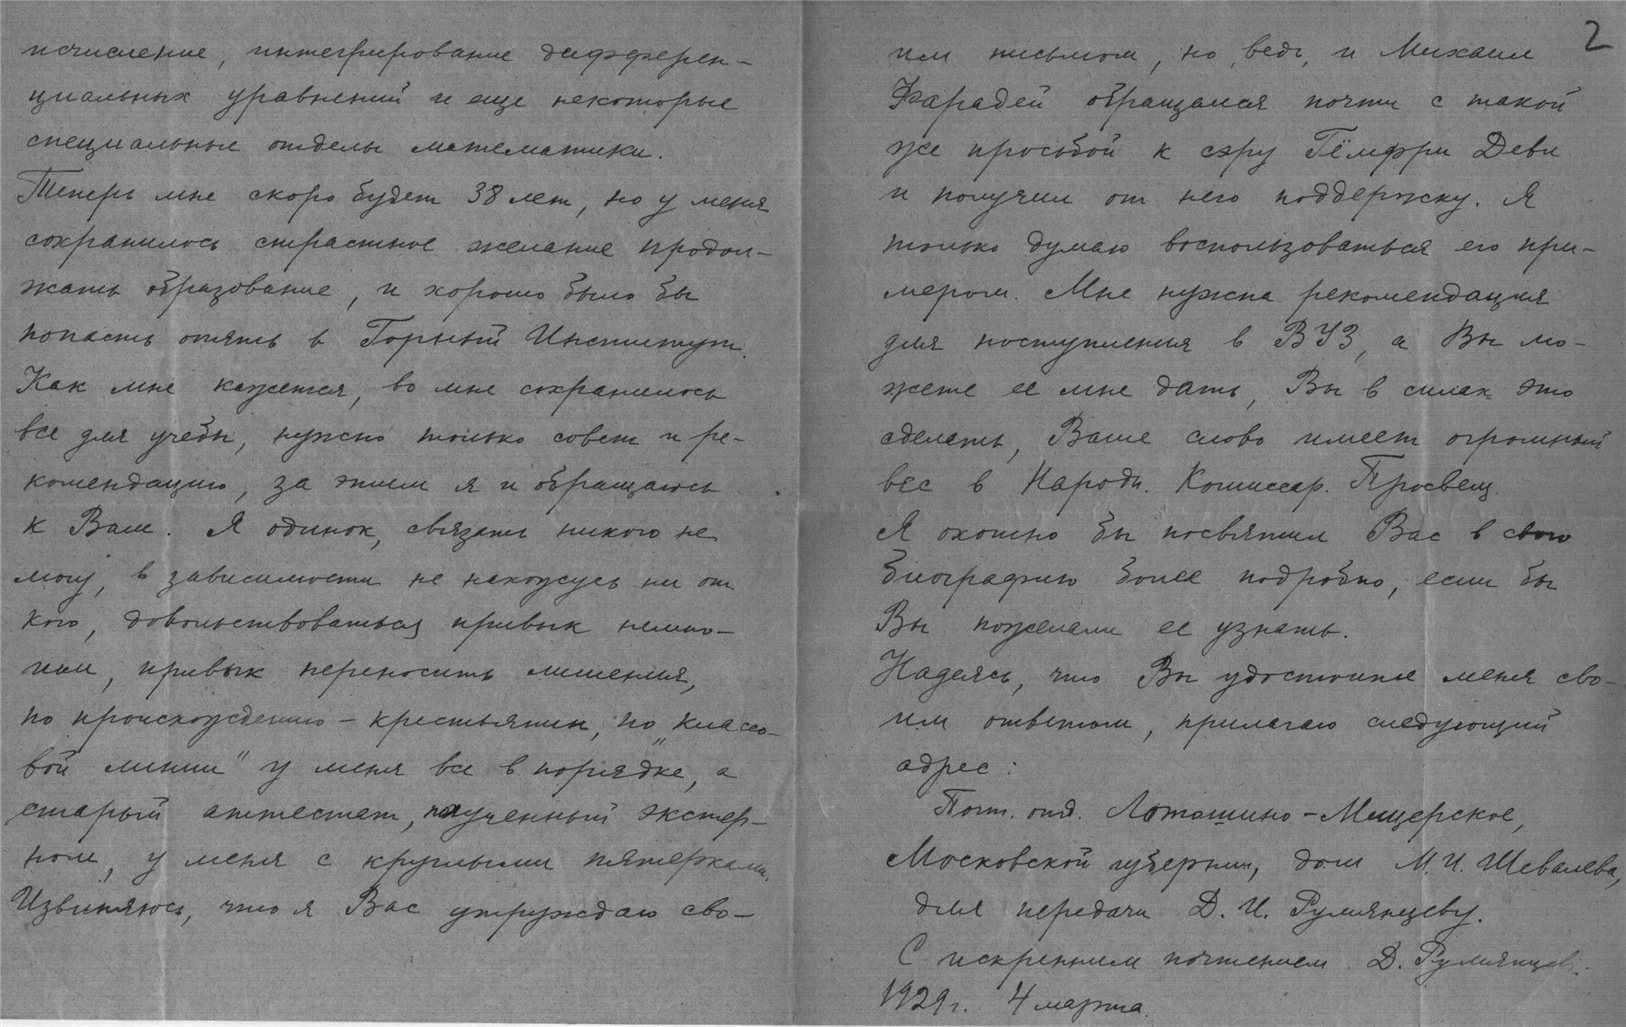 исчисление, интегрирование дифферен-
циальных уравнений и еще некоторые
специальные отделы математики.
Теперь мне скоро будет 38 лет, но у меня
сохранилось страстное желание продол-
жать образование, и хорошо было бы
попасть опять в Горный Институт.
Как мне кажется, во мне сохранилось
все для учебы, нужно только совет и ре-
комендацию, за этим я и обращаюсь
к Вам. Я одинок, связать никого не
могу, в зависимости не нахожусь ни от
кого, довольствоваться привык немно-
гим, привык переносить лишения,
по происхождению - крестьянин, по „классо-
вой линии" у меня все в порядке, а
старый аттестат, полученный экстер-
ном, у меня с круглыми пятерками.
Извиняюсь, что я Вас утруждаю сво-
2
им письмом, но, ведь, и Михаил
Фарадей обращался почти с такой
же просьбой к сэру Гёмфри Деви
и получил от него поддержку. Я
только думаю воспользоваться его при-
мером. Мне нужна рекомендация
для поступления в ВУЗ, а Вы мо-
жете ее мне дать, Вы в силах это
сделать, Ваше слово имеет огромный
вес в Народн. Комиссар. Просвещ.
Я охотно бы посвятил Вас в свою
биографию более подробно, если бы
Вы пожелали ее узнать.
Надеясь, что Вы удостоите меня сво-
им ответом, прилагаю следующий
адрес:
Почт. отд. Лотошино-Мещерское,
Московской губернии, дом М. И. Шевалева,
для передачи Д. И. Румянцеву.
С искренним почтением Д. Румянцев.
1929 г. 4 марта.